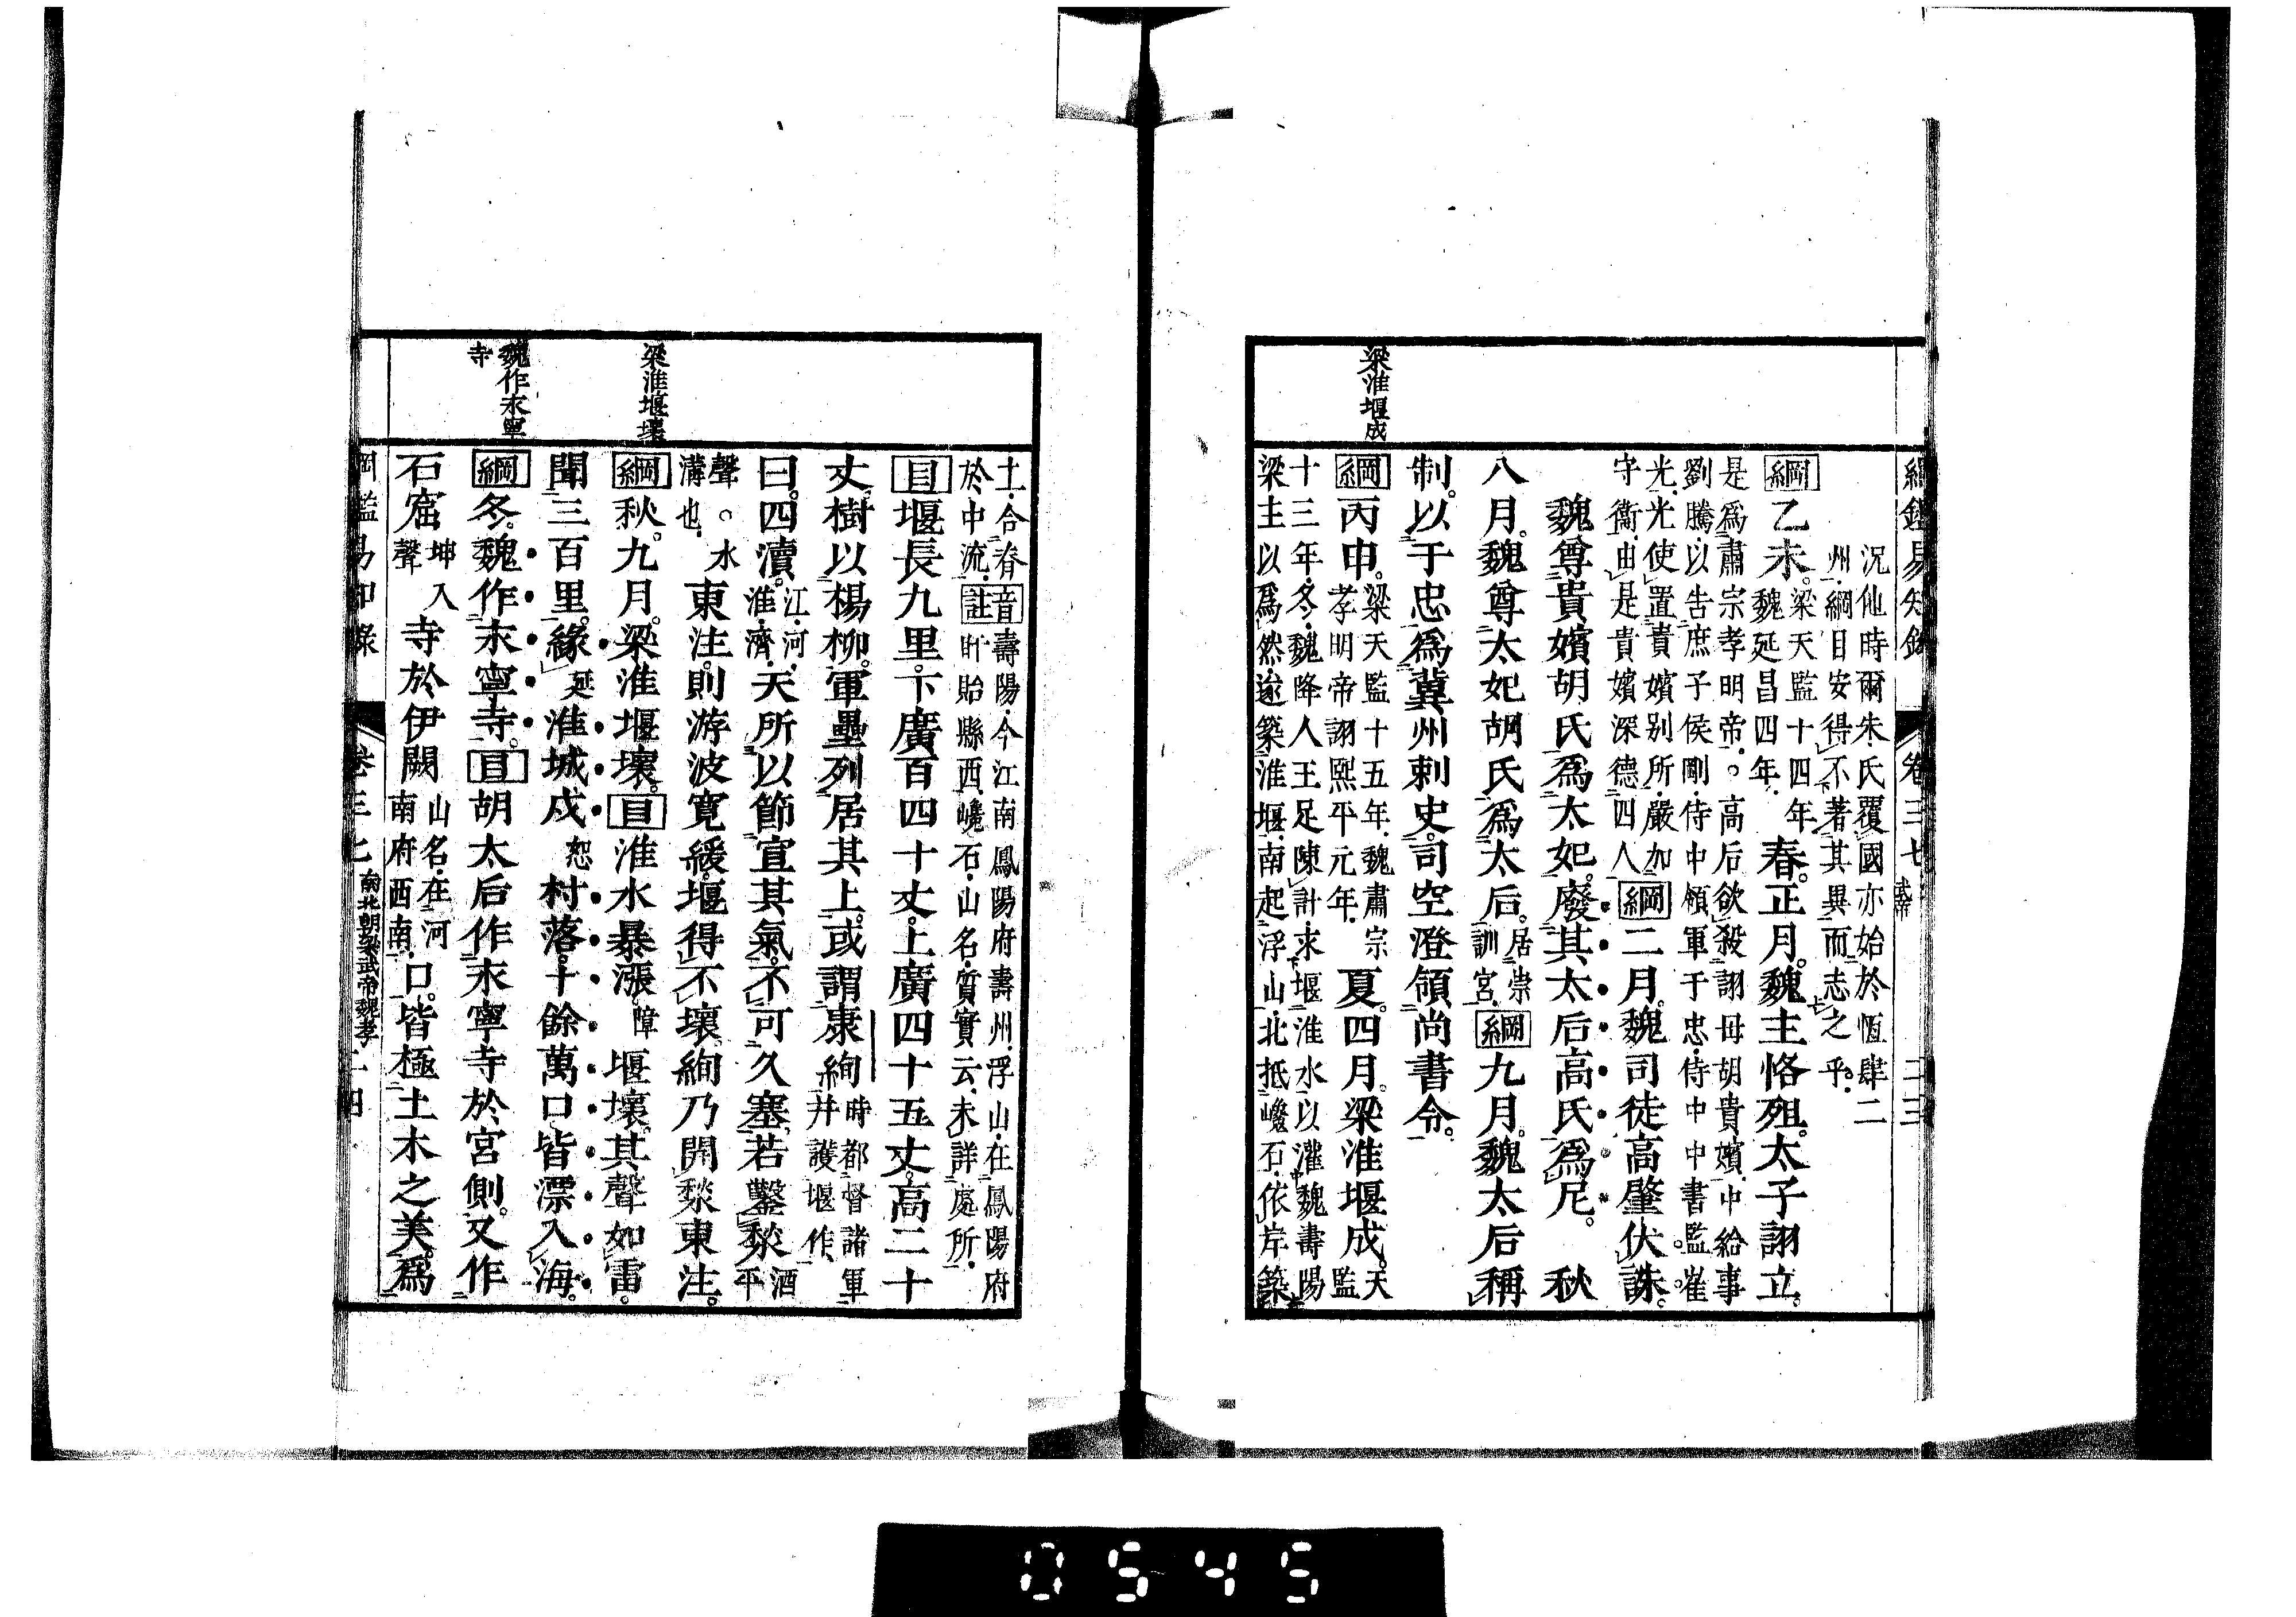 綱鑑易知錄 卷三七 武帝 二三
況仙時爾朱氏覆國亦始於恆肆二
州綱目安得不著其異而志之乎
綱乙未
梁天監十四年
魏延昌四年
春正月魏主恪殂太子詡立
是為肅宗孝明帝○高后欲殺詡母胡貴嬪中給事
劉騰以告庶子侯剛侍中領軍于忠侍中中書監崔
光光使置貴嬪別所嚴加
守衞由是貴嬪深德四人
綱二月魏司徒高肇伏誅
魏尊貴嬪胡氏為太妃廢其太后高氏為尼 秋
八月魏尊太妃胡氏為太后
居崇
訓宮
綱九月魏太后稱
制以于忠為冀州刺史司空澄領尚書令
梁淮堰成
綱丙申
梁天監十五年魏肅宗
孝明帝詡熙平元年
夏四月梁淮堰成
天
監
十三年冬魏降人王足陳計求堰淮水以灌魏壽陽
梁主以為然遂築淮堰南起浮山北抵巉石依岸築
土合脊
於中流
音註
壽陽今江南鳳陽府壽州浮山在鳳陽府
盱眙縣西巉石山名質實云未詳處所
目堰長九里下廣百四十丈上廣四十五丈高二十
丈樹以楊柳軍壘列居其上或謂康絢
時都督諸軍
幷護堰作
曰四瀆
江河
淮濟
天所以節宣其氣不可久塞若鑿湫
酒
平
聲○水
溝也
東注則游波寬緩堰得不壞絢乃開湫東注
梁淮堰壞
綱秋九月梁淮堰壞目淮水暴漲
障
堰壞其聲如雷
聞三百里緣
延
淮城戍
恕
村落十餘萬口皆漂入海
魏作永寧
寺
綱冬魏作永寧寺目胡太后作永寧寺於宮側又作
石窟
坤入
聲
寺於伊闕
山名在河
南府西南
口皆極土木之美為
綱鑑易知錄 卷三七 南北朝梁武帝魏孝 二四
0545